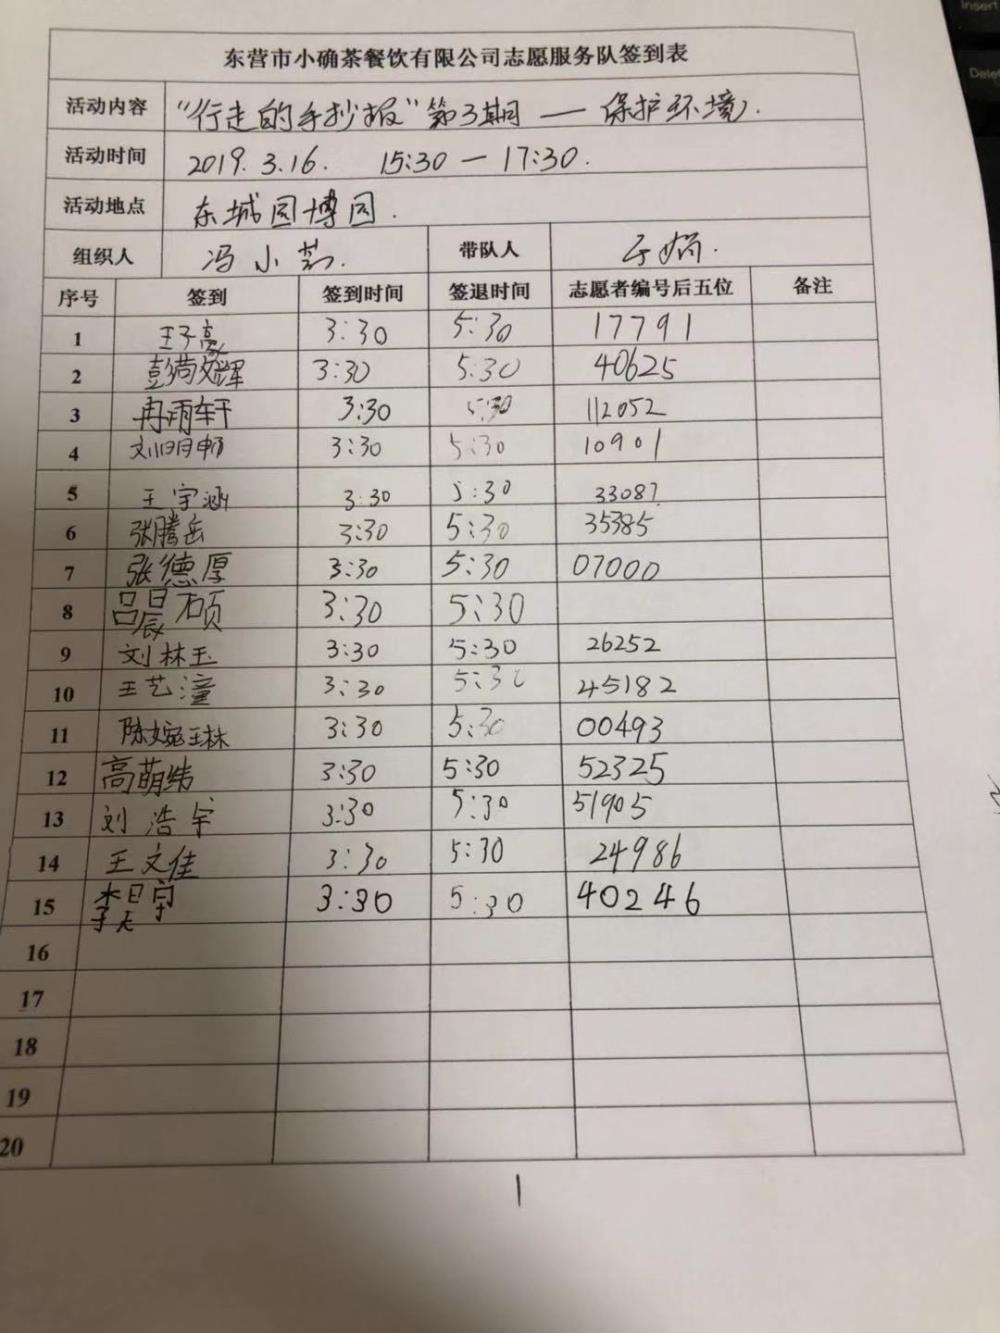 Insert
Delete
东营市小确茶餐饮有限公司志愿服务队签到表
活动内容 “行走的手抄报”第3期 — 保护环境.
活动时间 2019.3.16. 15:30 — 17:30.
活动地点 东城园博园.
组织人 冯小 带队人 于娟.
序号 签到 签到时间 签退时间 志愿者编号后五位 备注
1 王子豪 3:30 5:30 17791
2 彭荷文辉 3:30 5:30 40625
3 冉雨轩 3:30 5:30 112052
4 刘明畅 3:30 5:30 10901
5 王宇涵 3:30 5:30 33087
6 张腾岳 3:30 5:30 35385
7 张德厚 3:30 5:30 07000
8 吕晨硕 3:30 5:30
9 刘林玉 3:30 5:30 26252
10 王艺潼 3:30 5:30 45182
11 陈婉琳 3:30 5:30 00493
12 高萌纬 3:30 5:30 52325
13 刘浩宇 3:30 5:30 51905
14 王文佳 3:30 5:30 24986
15 李昊宇 3:30 5:30 40246
16
17
18
19
20
1